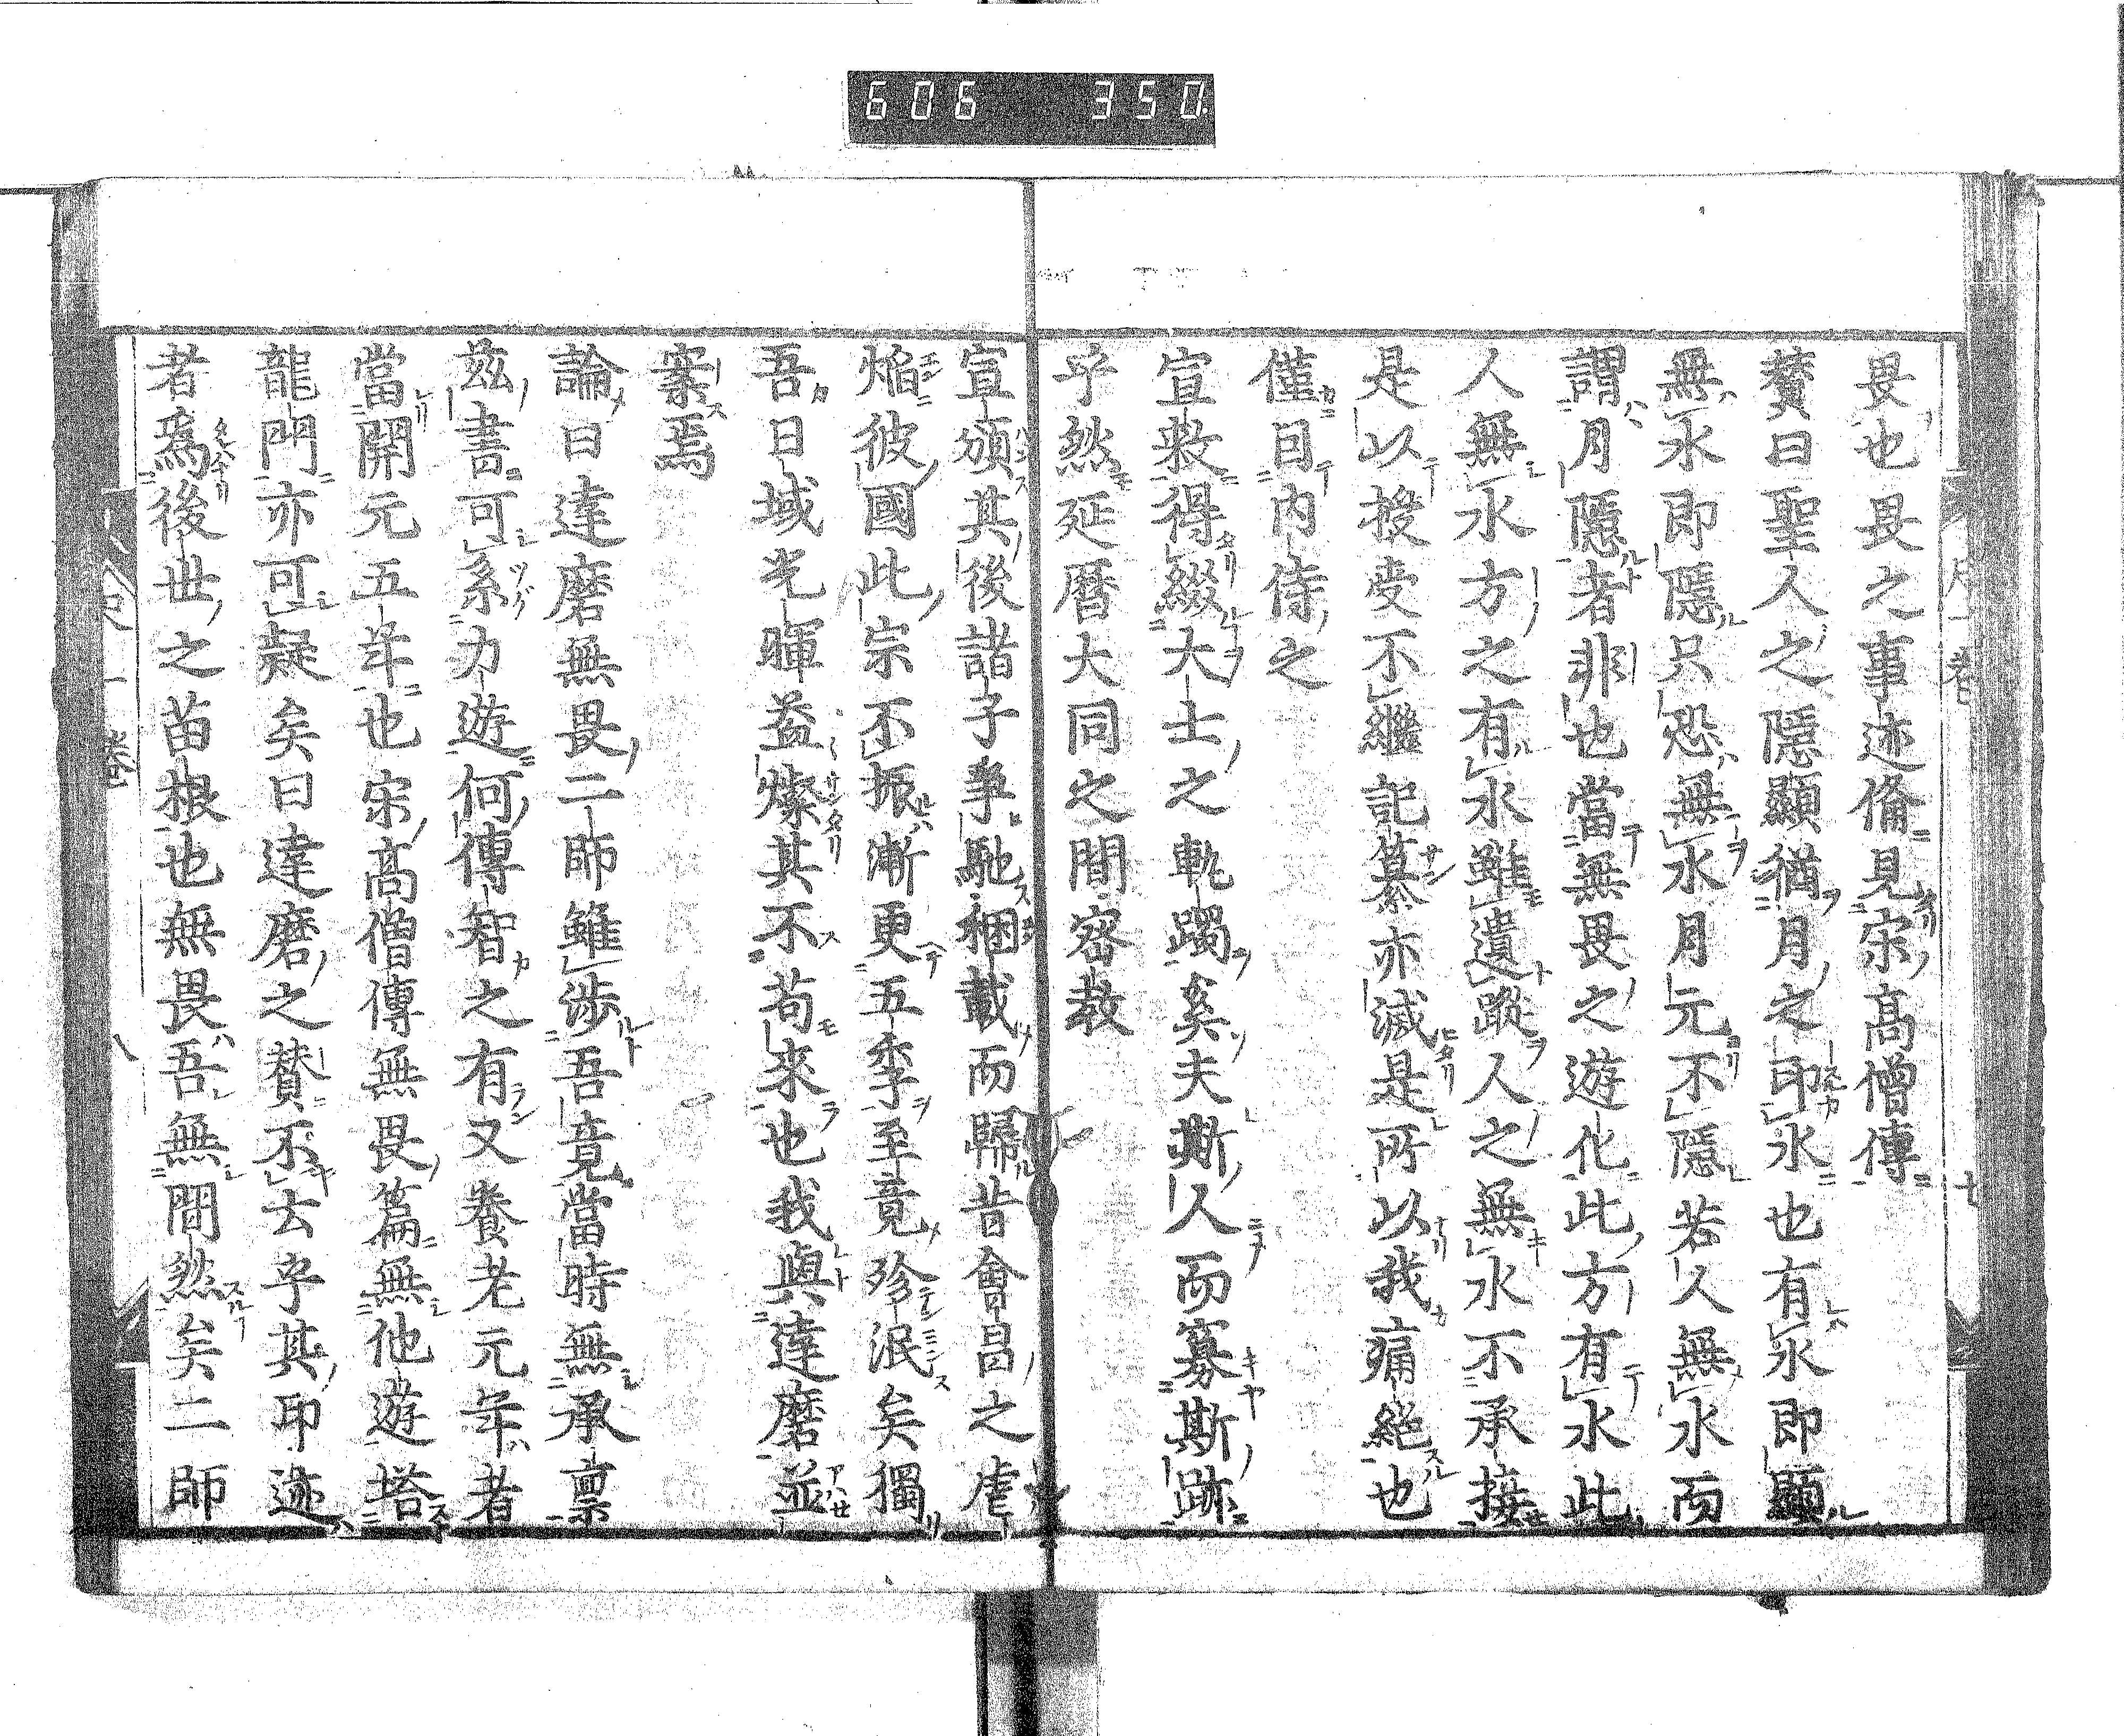 606 350.
畏也畏之事迹備見宋高僧傳
賛曰聖人之隱顯猶月之印水也有水即顯
無水即隱只恐無水月元不隱若人無水而
謂月隱者非也當無畏之遊化此方有水此
人無水方之有水雖遺蹤人之無水不承接
是以授受不繼記纂亦滅是所以我痛絕也
僅因内侍之
宣敕得綴大士之軌躅奚夫斯人而寡斯跡
乎然延曆大同之間密教
宣頒其後諸子爭馳稇載而歸昔會昌之虐
焰彼國此宗不振漸更五季至竟殄泯矣獨
吾日域光暉益燦其不苟來也我與達磨並
寨焉
論曰達磨無畏二師雖涉吾竟當時無承禀
茲書可系力遊何傳智之有又養老元年者
當開元五年也宋高僧傳無畏篇無他遊塔
龍門亦可疑矣曰達磨之賛不云乎其印迹
者爲後世之苗根也無畏吾無間然矣二師